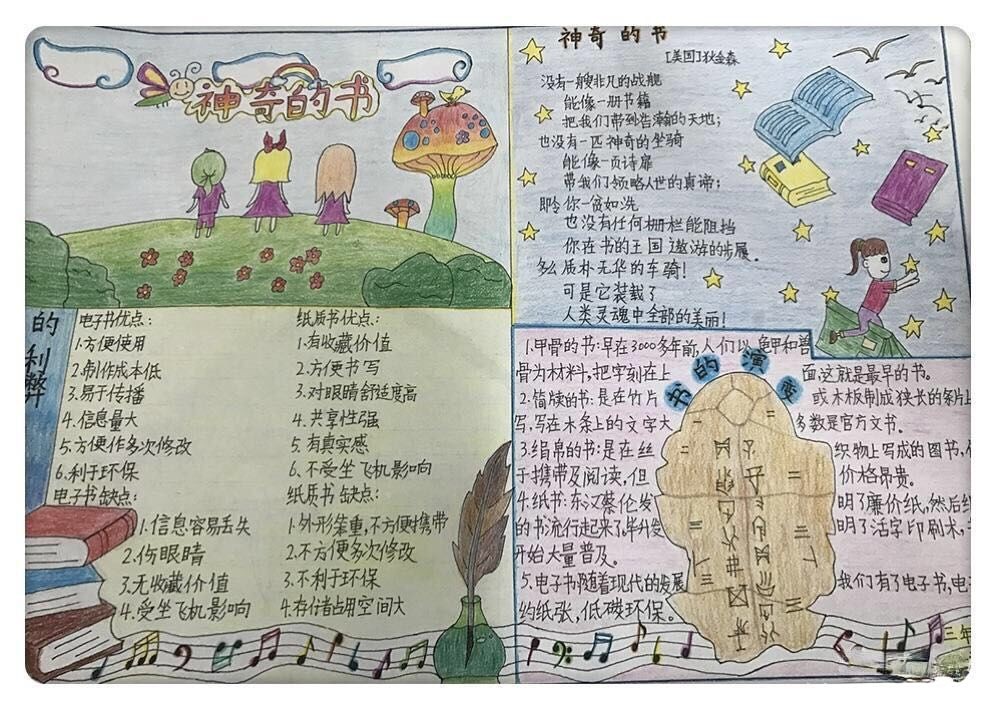 神奇的书
神奇的书
[美国]狄金森
没有一艘非凡的战舰
能像一册书籍
把我们带到浩瀚的天地;
也没有一匹神奇的坐骑
能像一页诗扉
带我们领略人世的真谛;
即令你一贫如洗
也没有任何栅栏能阻挡
你在书的王国遨游的步履。
多么质朴无华的车骑!
可是它装载了
人类灵魂中全部的美丽!
的利弊
电子书优点:
1.方便使用
2.制作成本低
3.易于传播
4.信息量大
5.方便作多次修改
6.利于环保
电子书缺点:
1.信息容易丢失
2.伤眼睛
3.无收藏价值
4.受坐飞机影响
纸质书优点:
1.有收藏价值
2.方便书写
3.对眼睛舒适度高
4.共享性强
5.有真实感
6.不受坐飞机影响
纸质书缺点:
1.外形笨重,不方便携带
2.不方便多次修改
3.不利于环保
4.存储占用空间大
书的演变
1.甲骨的书:早在3000多年前,人们以龟甲和兽
骨为材料,把字刻在上面,这就是最早的书。
2.简牍的书:是在竹片或木板制成狭长的条片上
写,写在木条上的文字大多数是官方文书。
3.绢帛的书:是在丝织物上写成的图书,
于携带及阅读,但价格昂贵。
4.纸书:东汉蔡伦发明了廉价纸,然后
的书流行起来了,毕升发明了活字印刷术,
开始大量普及。
5.电子书:随着现代的发展我们有了电子书,电
约纸张,低碳环保。
三年